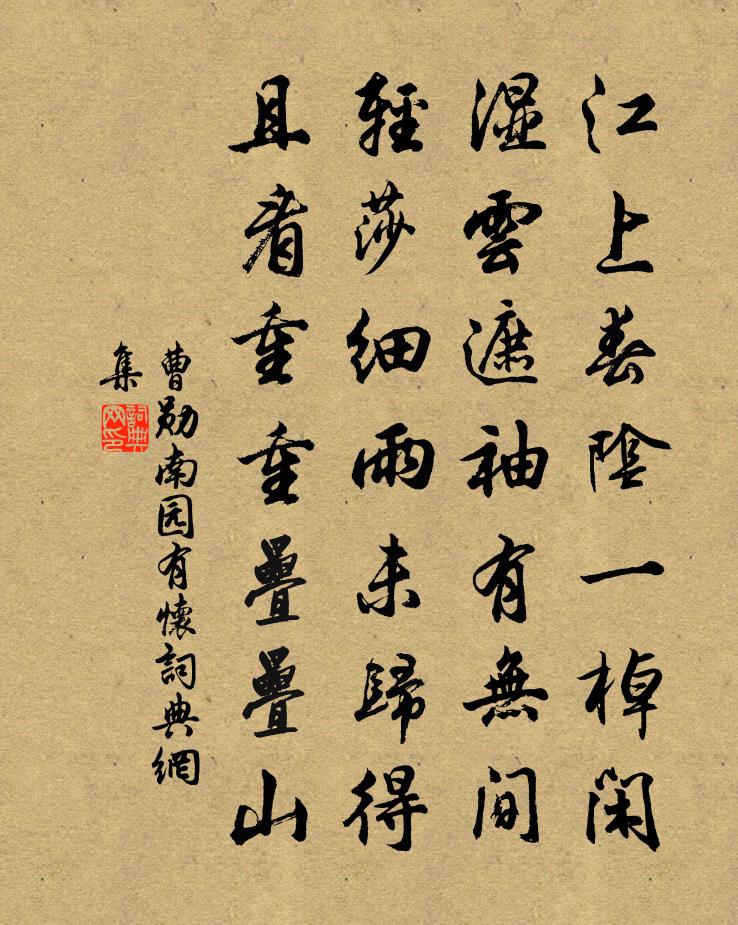 江上春陰一棹閑
濕雲遮袖有無間
輕莎細雨未歸得
且看重重疊疊山
曹勛南园有懷詞典網
集
詞典
网印